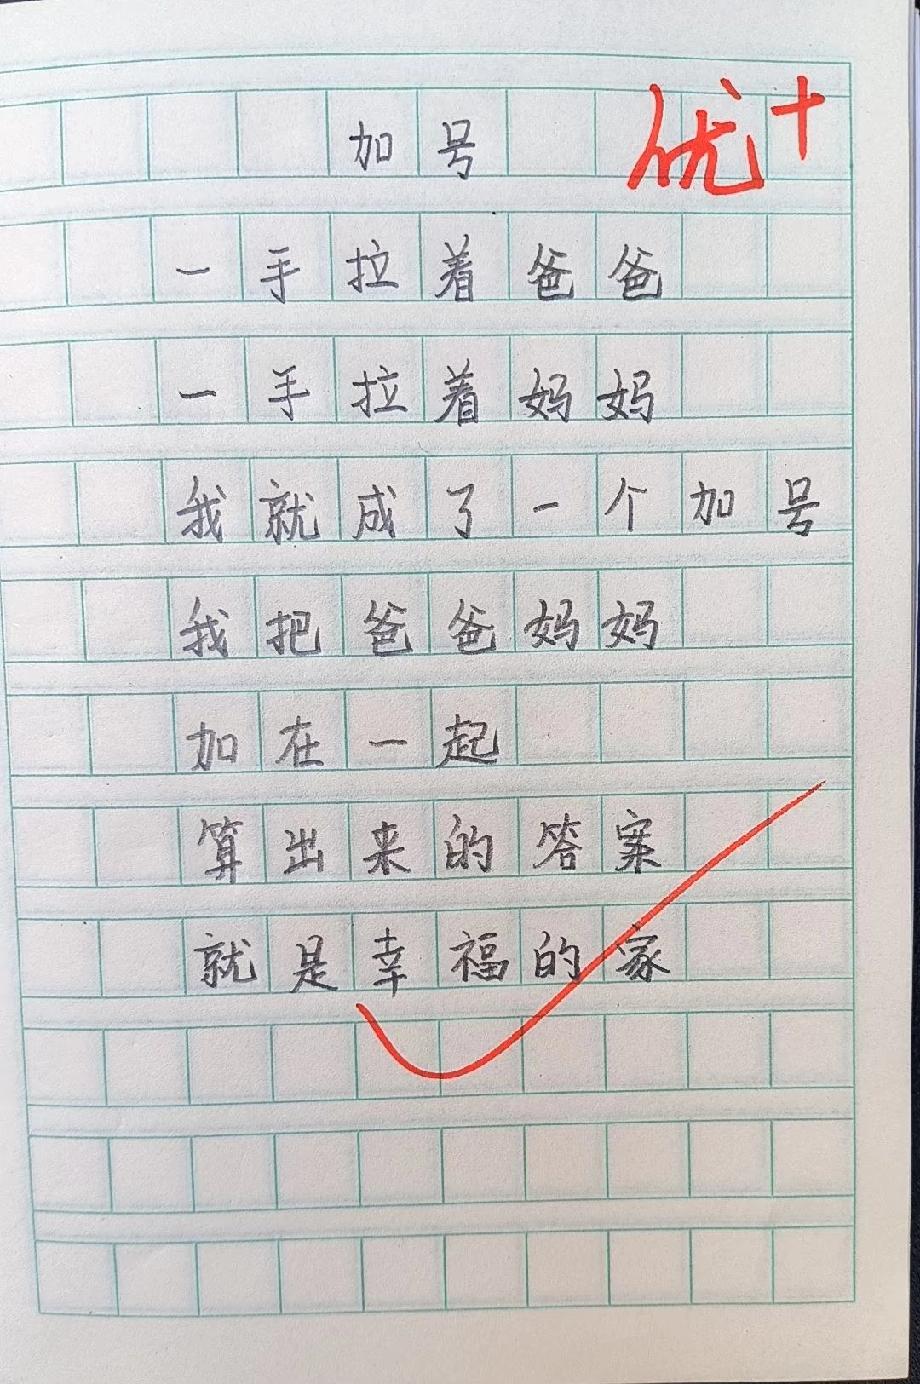 加号 优+
一手拉着爸爸
一手拉着妈妈
我就成了一个加号
我把爸爸妈妈
加在一起
算出来的答案
就是幸福的家